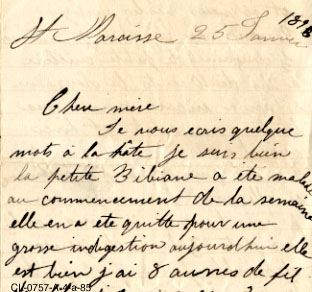 St Narcisse 25 Janvier 1898
Chere mère
Je vous ecris quelque
mots à la hâte je suis bien
la petite Bibiane a ete malade
au commencement de la semaine
elle en a ete quitte pour une
grosse indigestion aujourdhui elle
est bien j'ai 8 aunes de fit
CU-0757-A-4-a-85